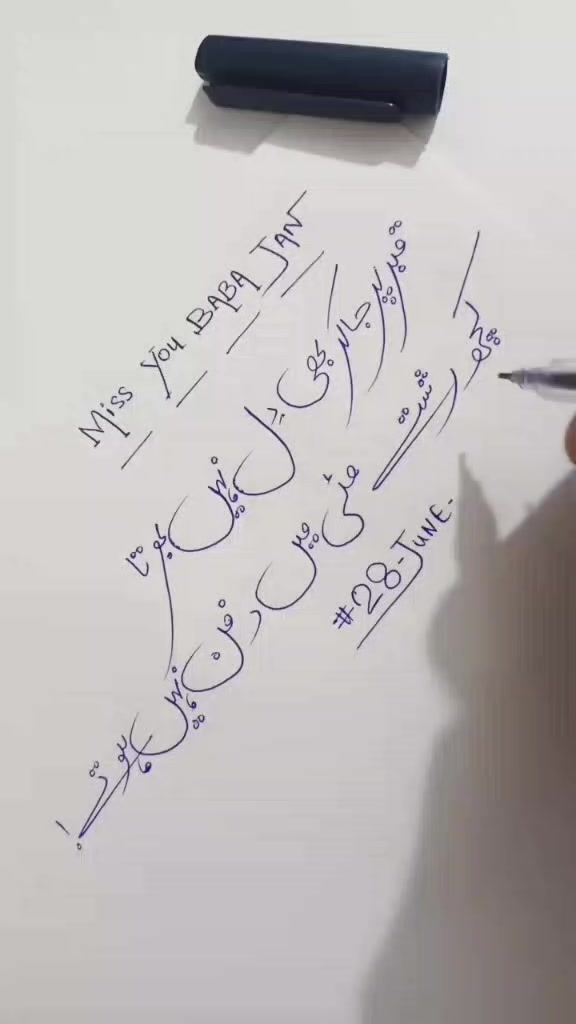 Miss You BABA JAN
قبر پر جا کر بھی دل نہیں بھرتا
کچھ رشتے مٹی میں دفن نہیں ہوتے!
#28-JUNE.